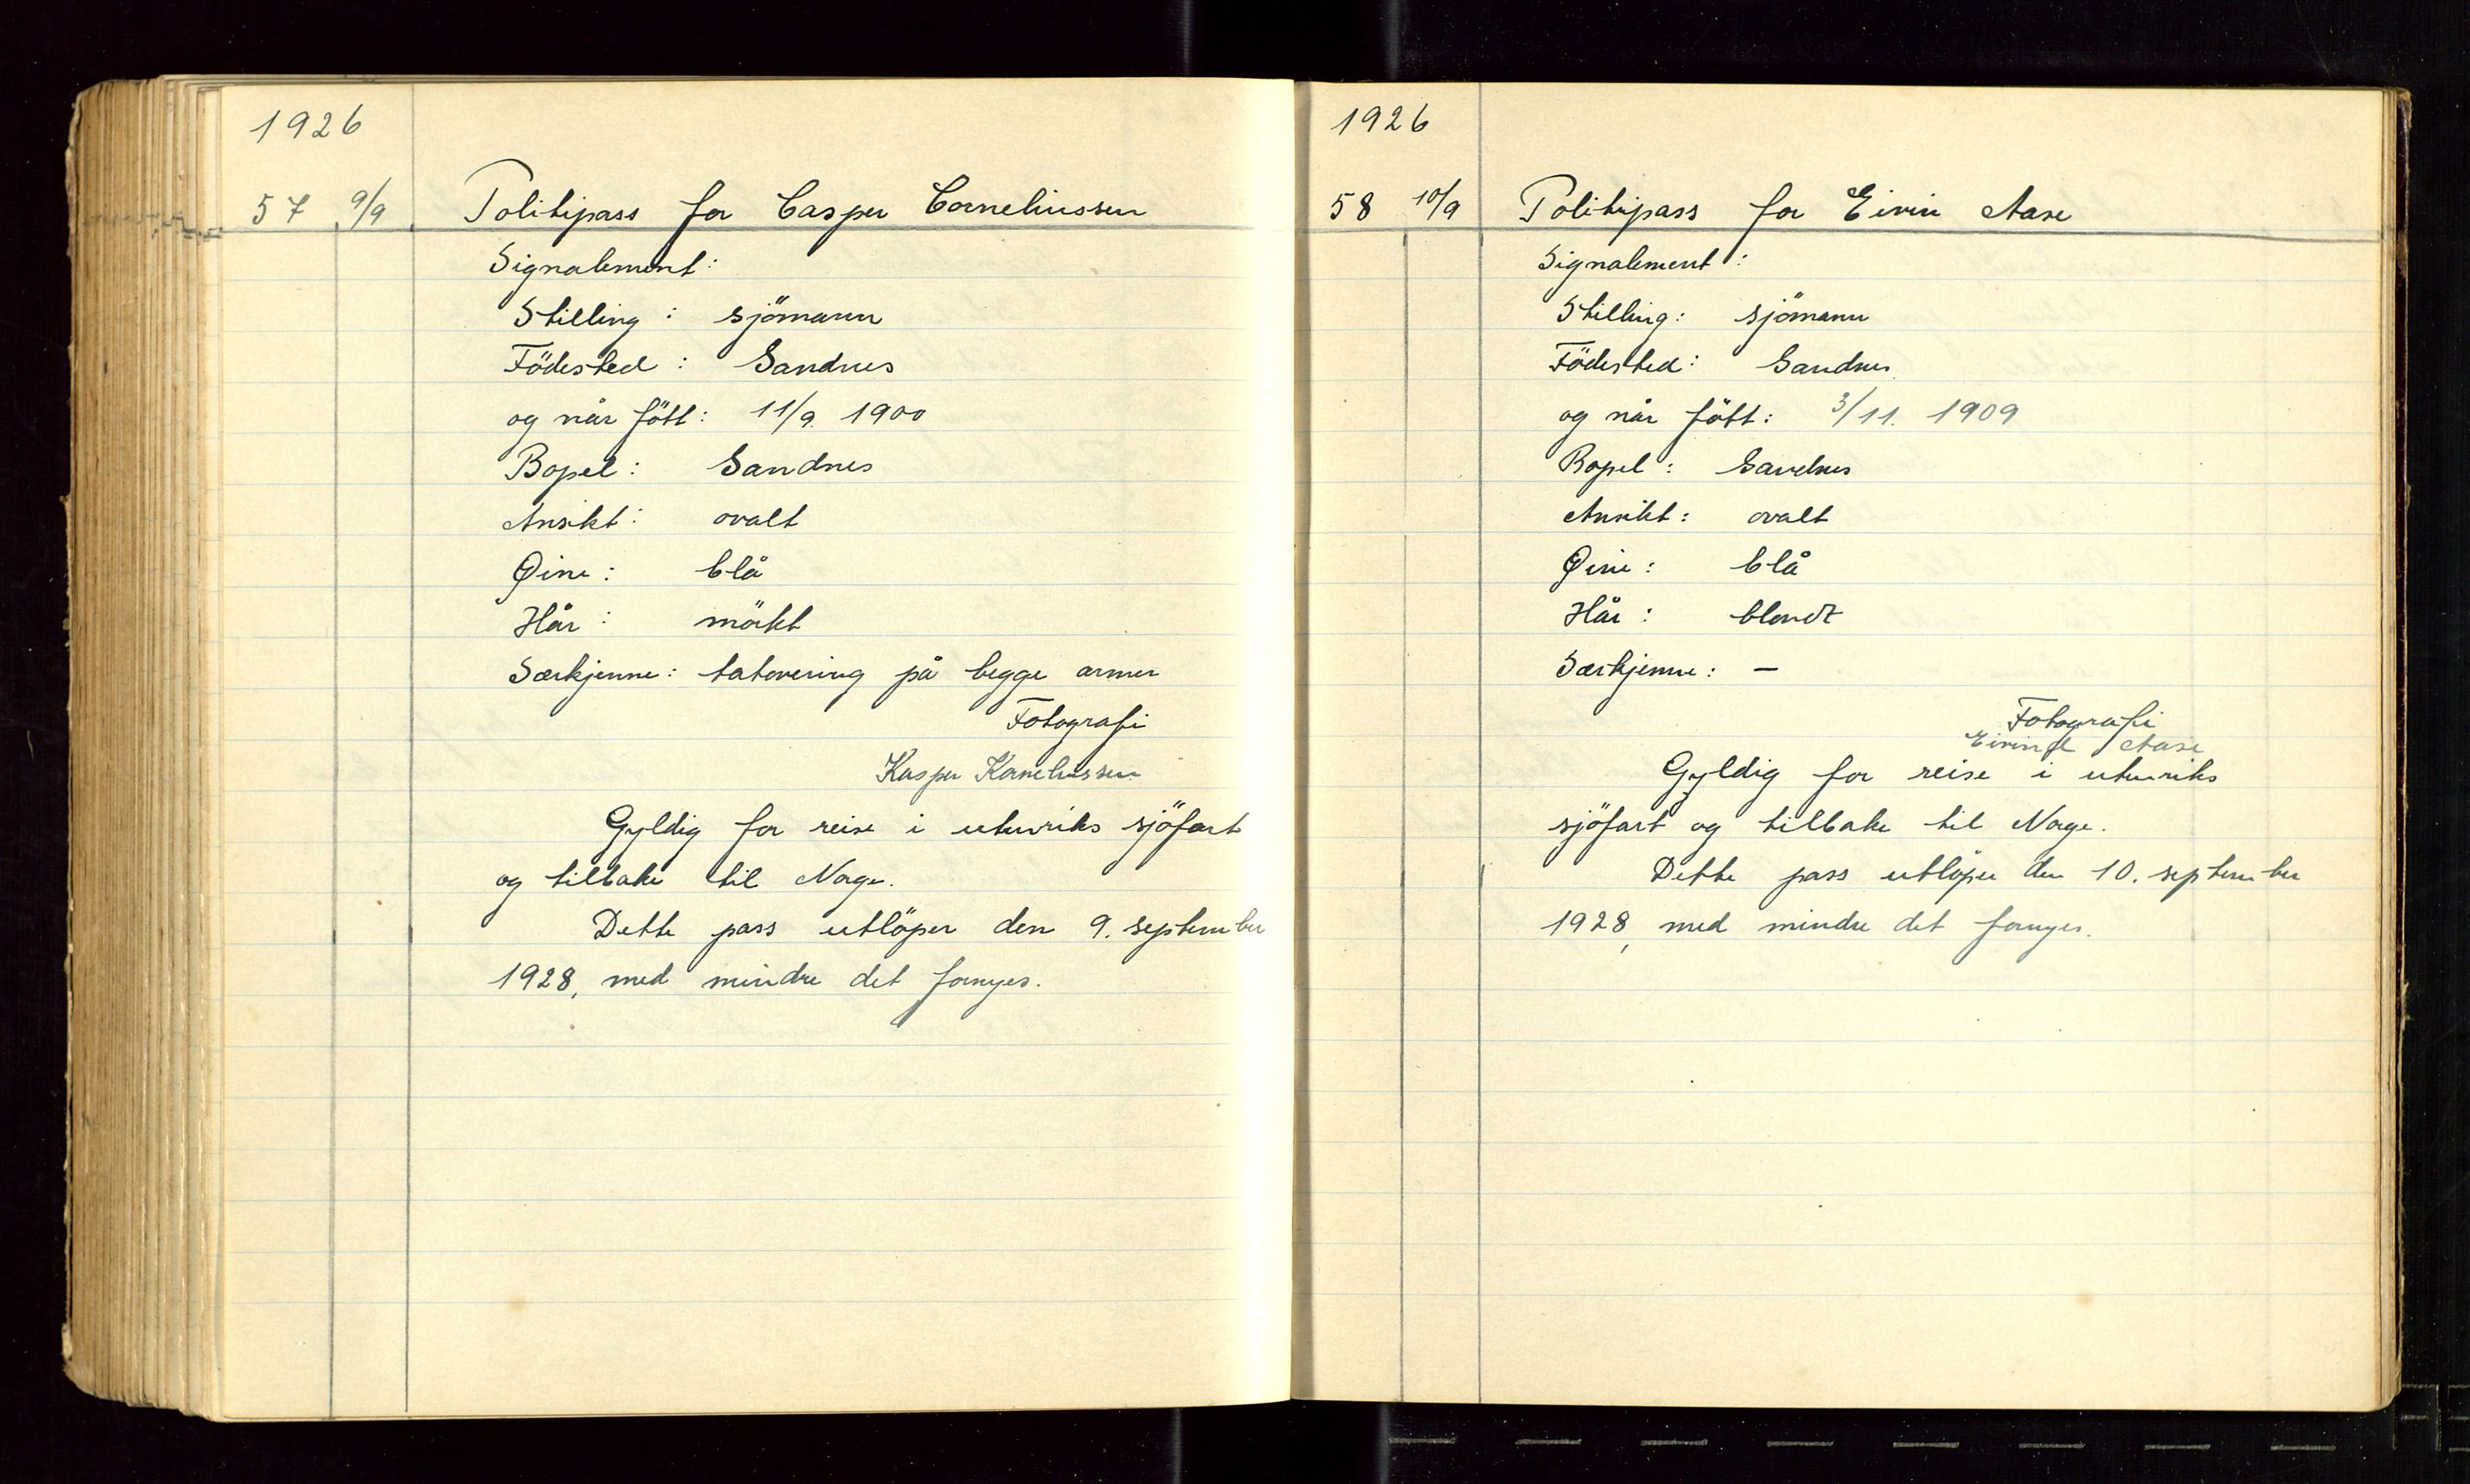 1926
57 9/9 Politipass for Casper Corneliussen
Signalement:
Stilling: sjömann
Födested: Sandnes
og når født: 11/9. 1900
Bopel: Sandnes
Ansikt: ovalt
Øine: blå
Hår: mörkt
Særkjenne: tatovering på begge armer
Fotografi
Kasper Korneliussen
Gyldig for reise i utenriks sjöfart
og tilbake til Norge.
Dette pass utlöper den 9. september
1928, med mindre det fornyes.
1926
58 10/9 Politipass for Eivin Aase
Signalement:
Stilling: sjömann
Födested: Sandnes
og når födt: 3/11. 1909
Bopel: Sandnes
Ansikt: ovalt
Øine: blå
Hår: blondt
Særkjenne: —
Fotografi
Eivind Aase
Gyldig for reise i utenriks
sjöfart og tilbake til Norge.
Dette pass utlöper den 10. september
1928, med mindre det fornyes.